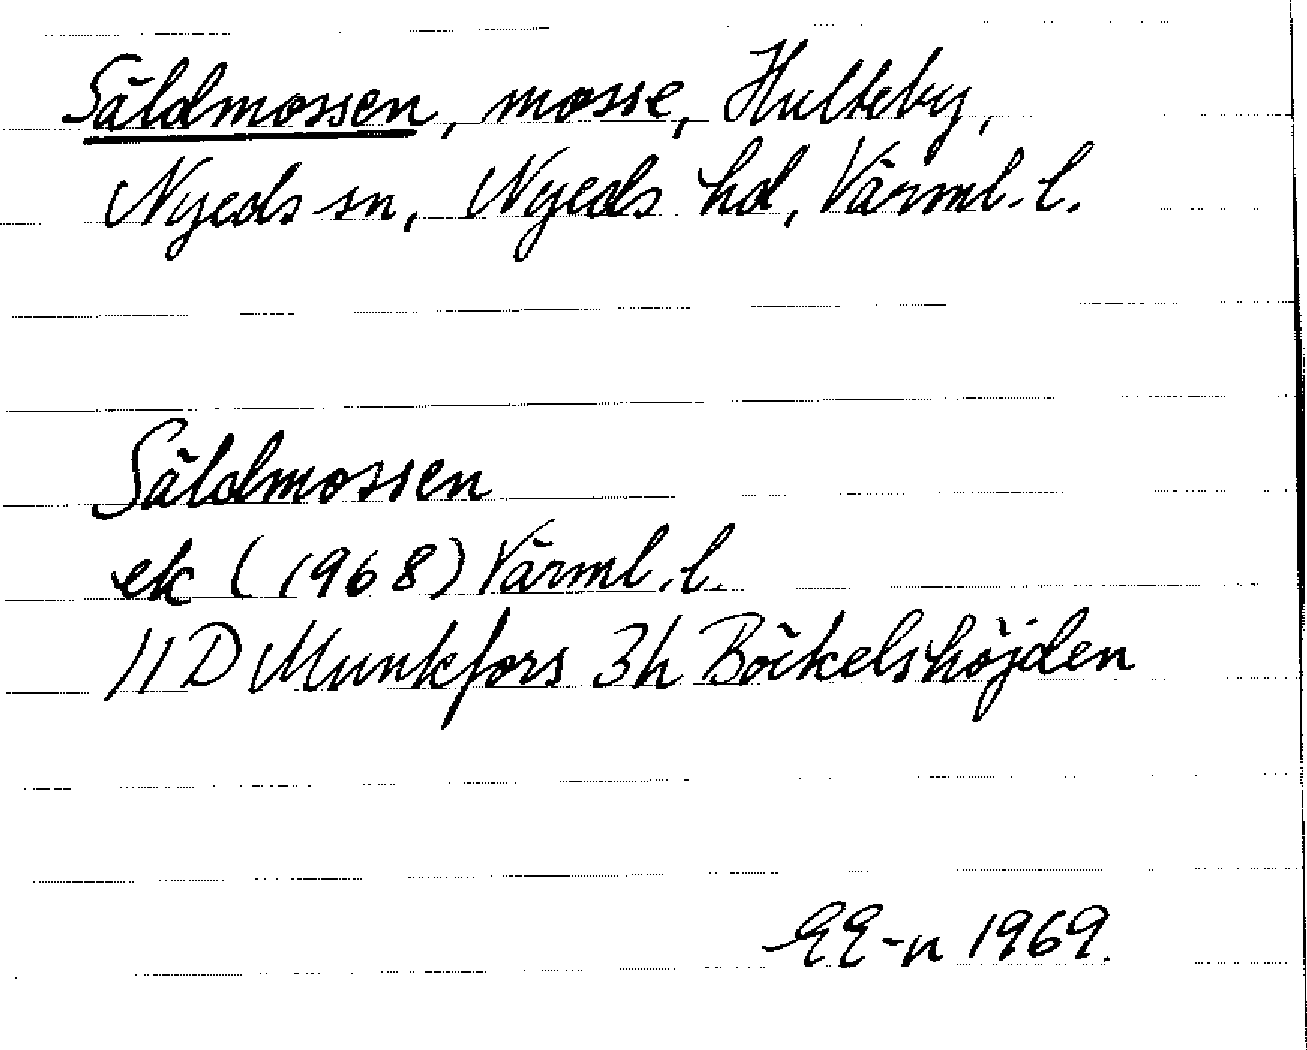 Säldmossen, mosse, Hulteby,
Nyeds sn, Nyeds hd, Värml. l.
Säldmossen
ek (1968) Värml. l.
11D Munkfors 3h Böckelshöjden
EE-n 1969.